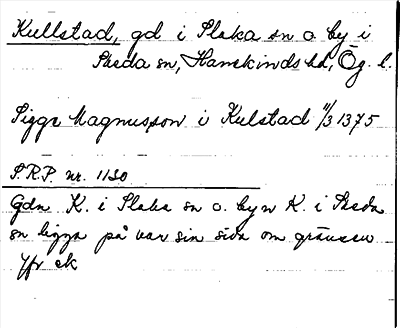 Kullstad, gd i Slaka sn o. by i
Skeda sn, Hanekinds hd, Ög. l.
Sigge Magnusson i Kulstad 11/3 1375
S.R.P. nr. 1130
Gdn K. i Slaka sn o. byn K. i Skeda
sn ligga på var sin sida om gränsen
Jfr ek